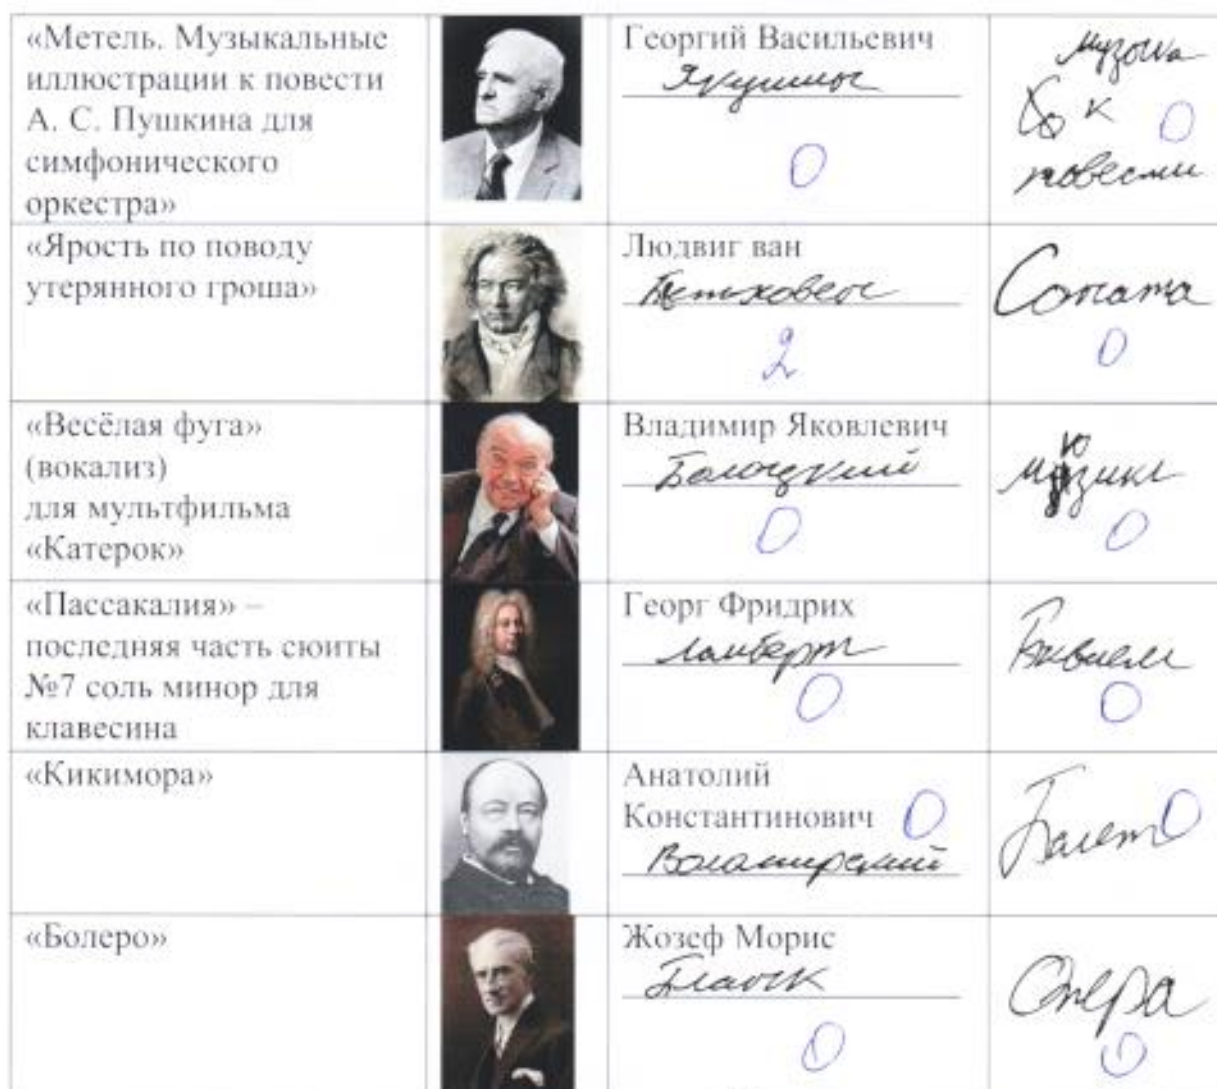 «Метель. Музыкальные
иллюстрации к повести
А. С. Пушкина для
симфонического
оркестра»
Георгий Васильевич
Якушин
0
музыка
к 0
повести
«Ярость по поводу
утерянного гроша»
Людвиг ван
Бетховен
2
Соната
0
«Весёлая фуга»
(вокализ)
для мультфильма
«Катерок»
Владимир Яковлевич
0
мюзикл
0
«Пассакалия» –
последняя часть сюиты
№7 соль минор для
клавесина
Георг Фридрих
Ламберт
0
0
«Кикимора»
Анатолий
Константинович 0
Балет 0
«Болеро»
Жозеф Морис
Бланк
0
Опера
0